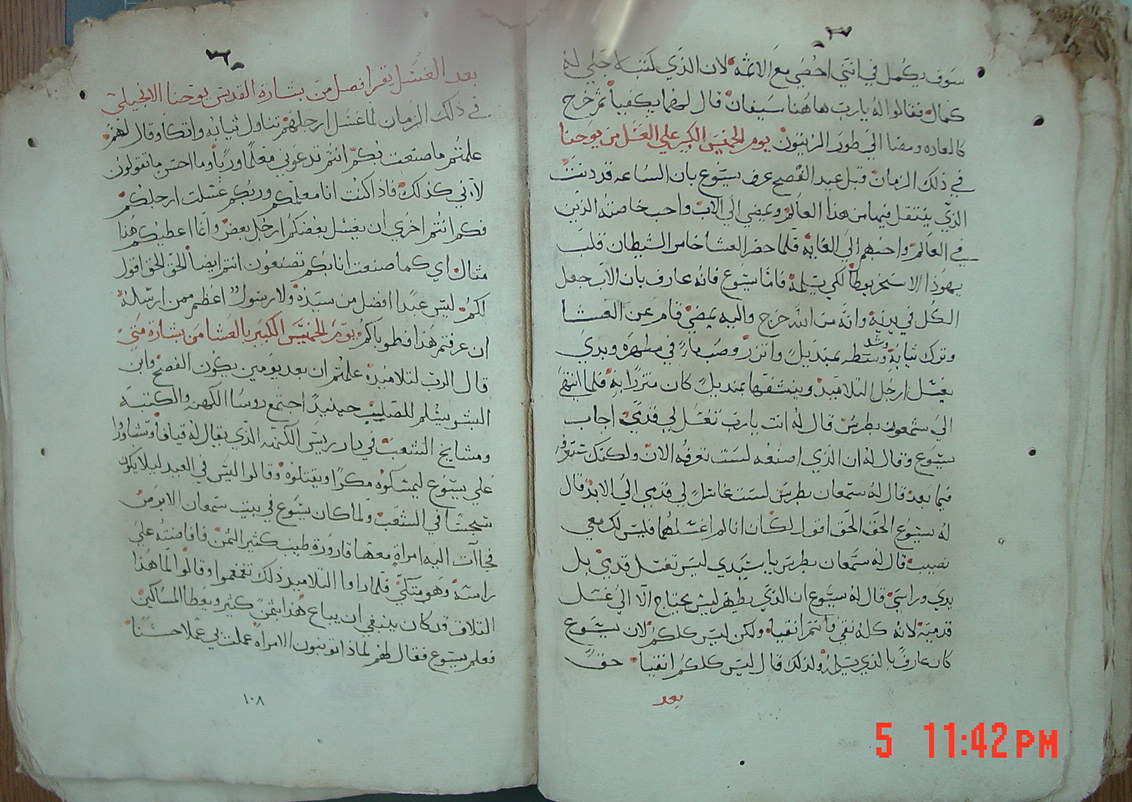 سوف يكمل في انني احصي مع الاثمة لان الذي كتب لاجلي له
كمال فقالوا له يارب هاهنا سيفان قال لهما يكفيا ثم خرج
كالعاده ومضا الي طور الزيتون يوم الخميس الكبير علي الغسل من يوحنا
في ذلك الزمان قبل عيد الفصح عرف يسوع بان الساعه قد دنت
الذي ينتقل فيها من هذا العالم ويمضي الي الاب واحب خاصته الذين
في العالم واحبهم الي الغايه فلما حضر العشا خامر الشيطان قلب
يهودا الاسخريوطا لكي يسلمه فاما يسوع فانه عارف بان الاب جعل
الكل في يديه وانه من الله خرج واليه يمضي قام عن العشا
وترك ثيابه وشد وسطه بمنديل واتزر وصب ماء في مطهره وبدي
يغسل ارجل التلاميذ وينشفها بمنديل كان متزرا به فلما انتهي
الي سمعون بطرس قال له انت يارب تغسل لي قدمي اجاب
يسوع وقال له ان الذي اصنعه لست تعرفه الان ولكنك ستعرف
فيما بعد قال له سمعان بطرس لست غاسل لي قدمي الي الابد قال
له يسوع الحق الحق اقول لك ان انا لم اغسلهما فليس لك معي
نصيب قال له سمعان بطرس يا سيدي ليس تغسل قدمي بل
يدي وراسي قال له يسوع ان الذي يطهر ليس يحتاج الا الي غسل
قدميه لانه كله نقي فانتم انقيا ولكن ليس كلكم لان يسوع
كان عارفا بالذي يسلمه ولذلك قال ليس كلكم انقيا حقا
بعد
بعد الغسل تقرا فصل من بشارة القديس يوحنا الانجيلي
في ذلك الزمان لما غسل ارجلهم تناول ثيابه واتكا وقال لهم
علمتم ما صنعت بكم انتم تدعوني معلما وربا وما احسن ما تقولون
لاني كذلك فاذا كنت انا معلمكم وربكم غسلت ارجلكم
فكم انتم احري ان يغسل بعضكم ارجل بعض وانما اعطيكم هذا
مثال اي كما صنعت انا بكم تصنعون انتم ايضا الحق الحق اقول
لكم ليس عبدا افضل من سيده ولا رسول اعظم ممن ارسله
ان عرفتم هذا فطوباكم يوم الخميس الكبير بالعشا من بشارة متي
قال الرب لتلاميذه علمتم ان بعد يومين يكون الفصح وابن
البشر يسلم للصليب حينيذ اجتمع روسا الكهنه والكتبه
ومشايخ الشعب في دار ريس الكهنه الذي يقال له قيافا وتشاوروا
علي يسوع ليمسكوه مكرا ويقتلوه وقالوا ليس في العيد ليلا يكون
شجسا في الشعب ولما كان يسوع في بيت سمعان الابرص
فجاات اليه امراة معها قارورة طيب كثير الثمن فافاضته علي
راسه وهو متكي فلما راوا التلاميذ ذلك تقمقموا وقالوا لما هذا
التلاف قد كان ينبغي ان يباع هذا بثمن كثير ويعطا المساكين
فعلم يسوع فقال لهم لماذا توبنون الامراه عملت بي عملا حسنا
١٠٨
5 11:42 PM